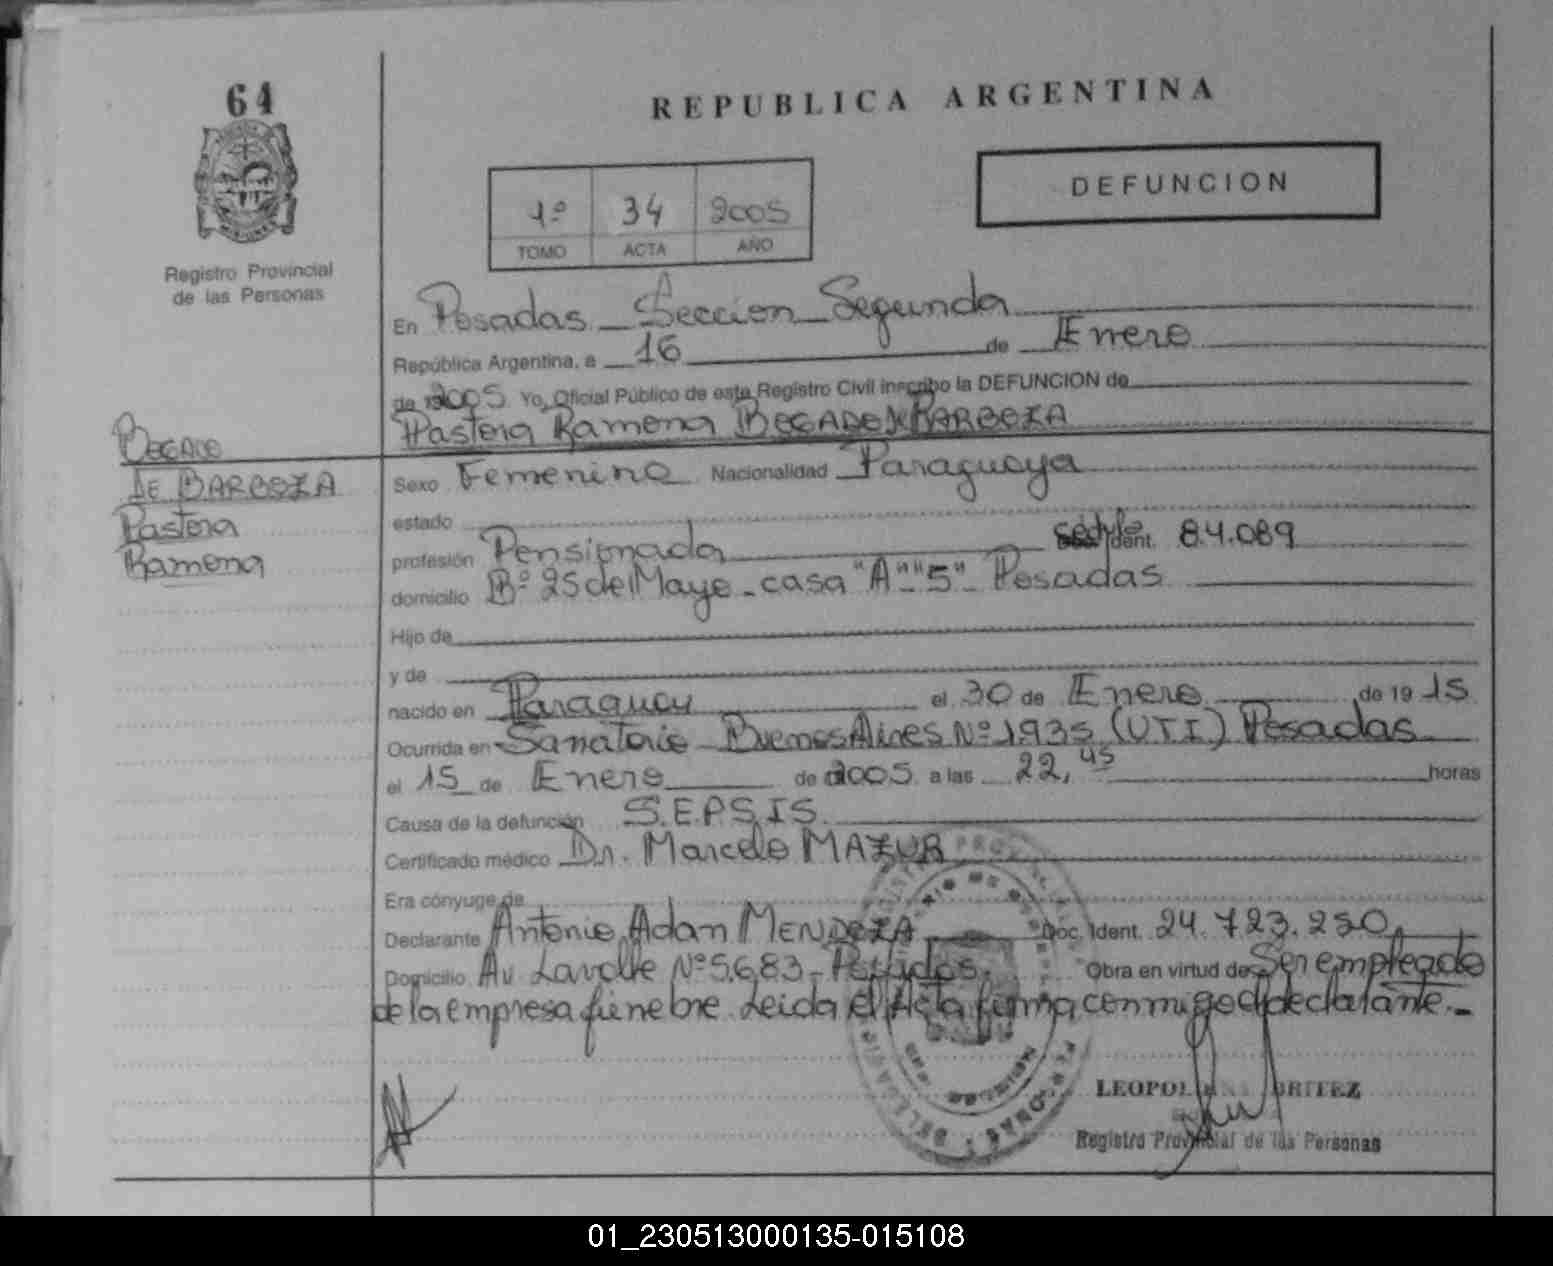 64
REPUBLICA ARGENTINA
DEFUNCION
1º 34 2005
TOMO ACTA AÑO
Registro Provincial
de las Personas
En Posadas - Seccion Segunda
República Argentina, a 16 de Enero
de 2005. Yo, Oficial Público de este Registro Civil inscribo la DEFUNCION de
Pastora Ramona BOGADO DE BARBOZA
BOGADO
DE BARBOZA
Pastora
Ramona
Sexo Femenino Nacionalidad Paraguaya
estado
profesión Pensionada cédula Ident. 84.089
domicilio Bº 25 del Mayo - casa "A" "5" - Posadas
Hijo de
y de
nacido en Paraguay el 30 de Enero de 19 15
Ocurrida en Sanatorio Buenos Aires Nº 1935 (UTI) Posadas
el 15 de Enero de 2005. a las 22,45 horas
Causa de la defunción S.E.P.S.I.S.
Certificado médico Dr. Marcelo MAZUR
Era cónyuge de
Declarante Antonio Adan MENDOZA Doc. Ident. 24.723.250
Domicilio Av Lavalle Nº 5.683 - Posadas. Obra en virtud de Ser empleado
de la empresa fúnebre. Leida el Acta firma conmigo el declarante.-
Registro Provincial de las Personas
01_230513000135-015108